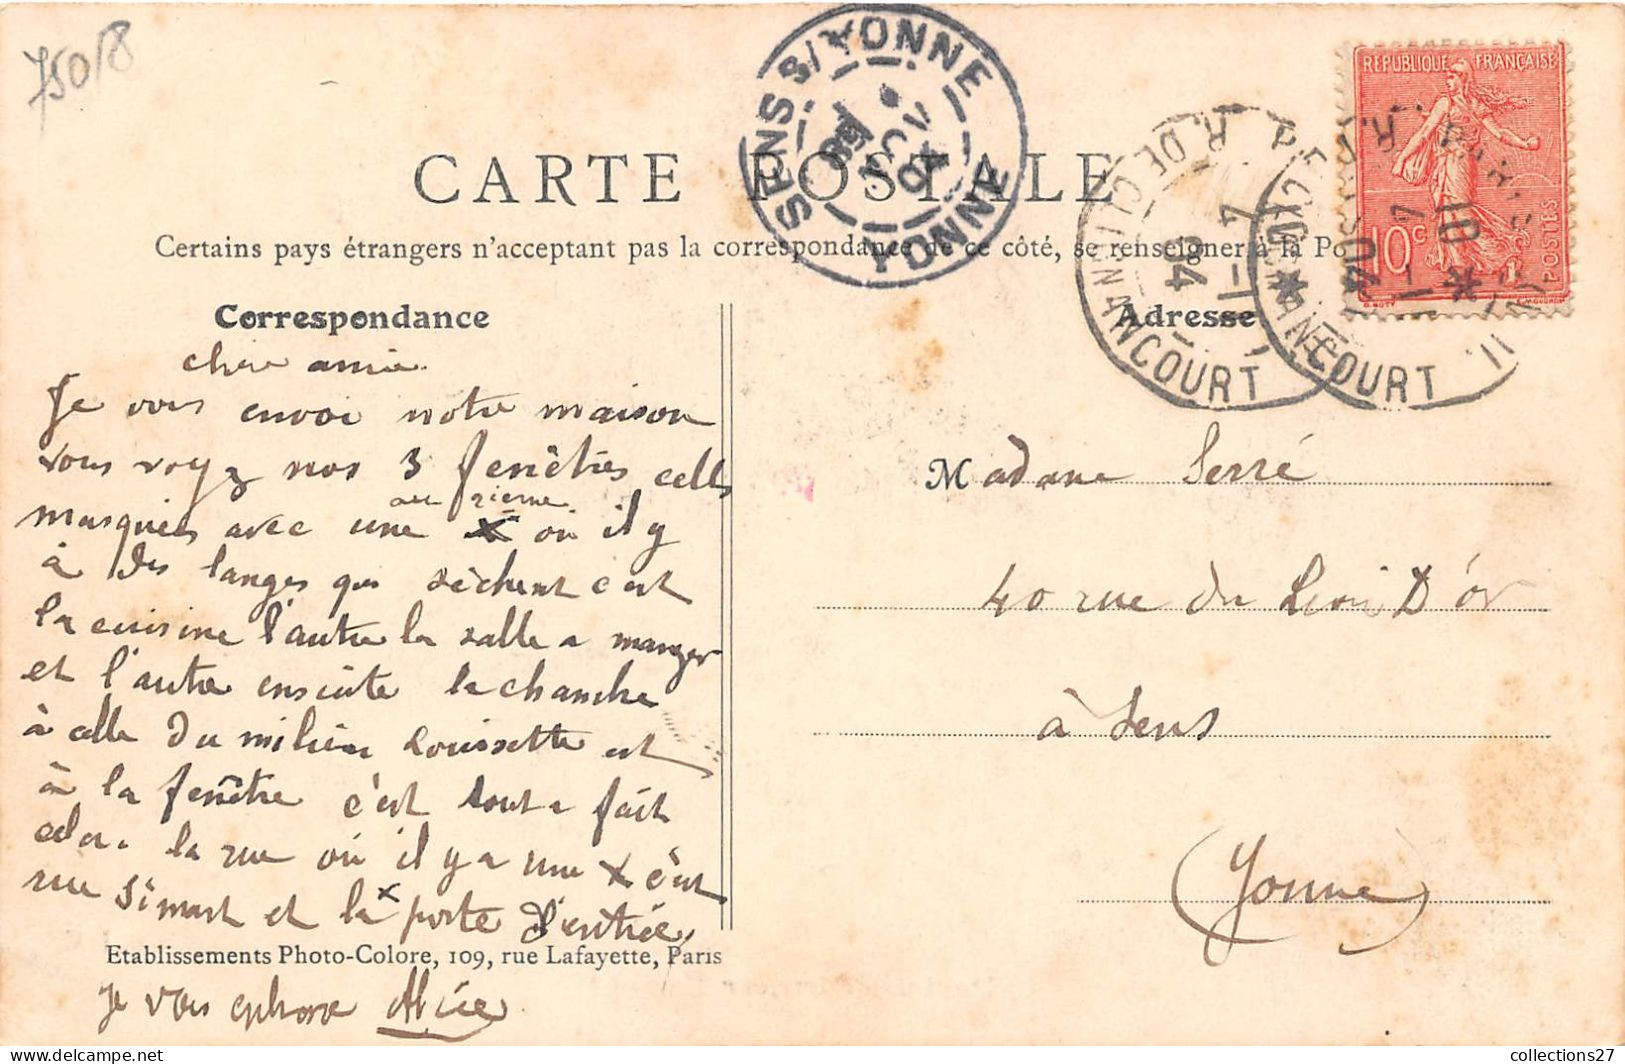 75018
SENS S/YONNE
YONNE
REPUBLIQUE FRANÇAISE
10c
POSTES
R. DE CLIGNANCOURT
7 - 1
04
PARIS
CARTE POSTALE
Certains pays étrangers n'acceptant pas la correspondance de ce côté, se renseigner à la Po
Correspondance
Adresse
chère amie.
Je vous envoi notre maison
vous voyez nos 3 fenêtres celles
masquées avec une X où il y
au 2ieme
à des langes qui sèchent c'est
la cuisine l'autre la salle a manger
et l'autre ensuite la chambre
à celle du milieu Louisette est
à la fenêtre c'est tout a fait
cela. la rue où il y a une X c'est
rue Simart et la x porte d'entrée,
Etablissements Photo-Colore, 109, rue Lafayette, Paris
Je vous embrasse Alice
Madame Serré
40 rue du Lion D'or
à Sens
(Yonne)
collections27